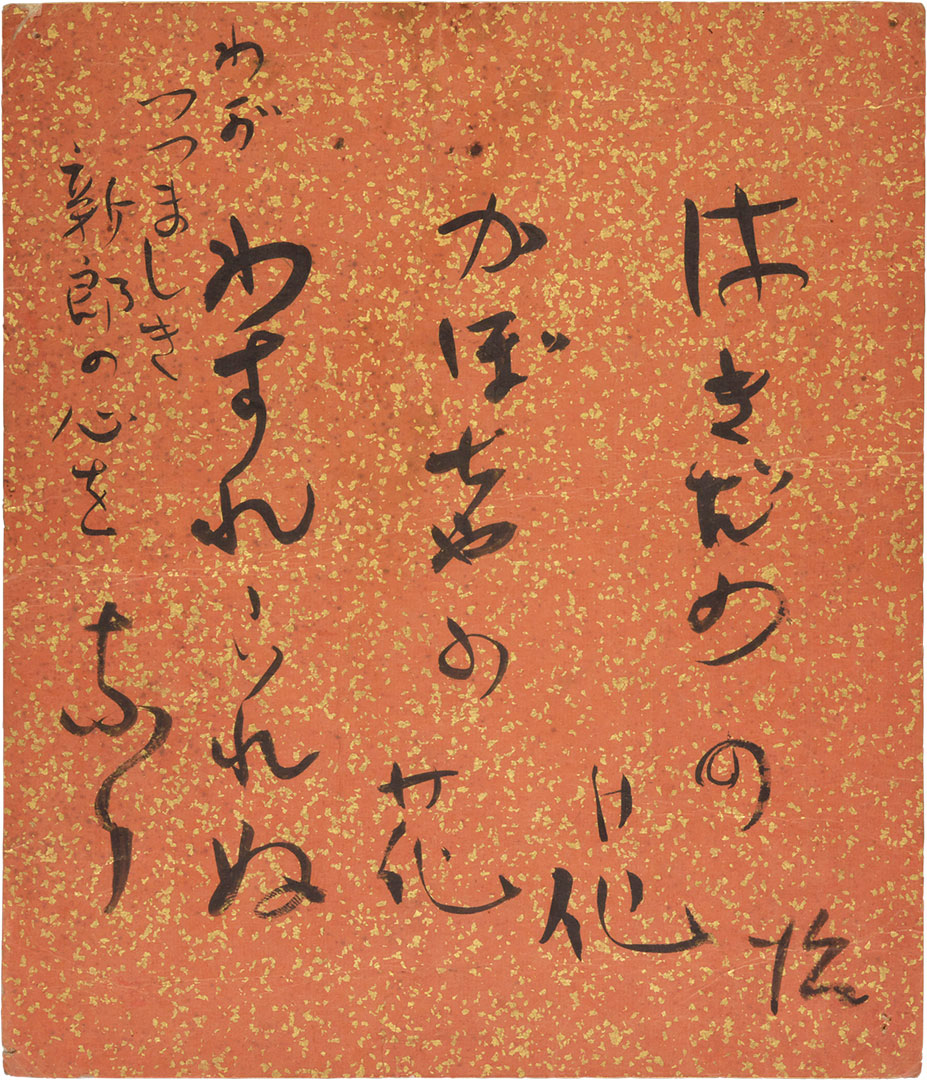 はきだめの花
かぼちやの花
わすれられぬ
なり
わが
つつましき
新郎の心を
治